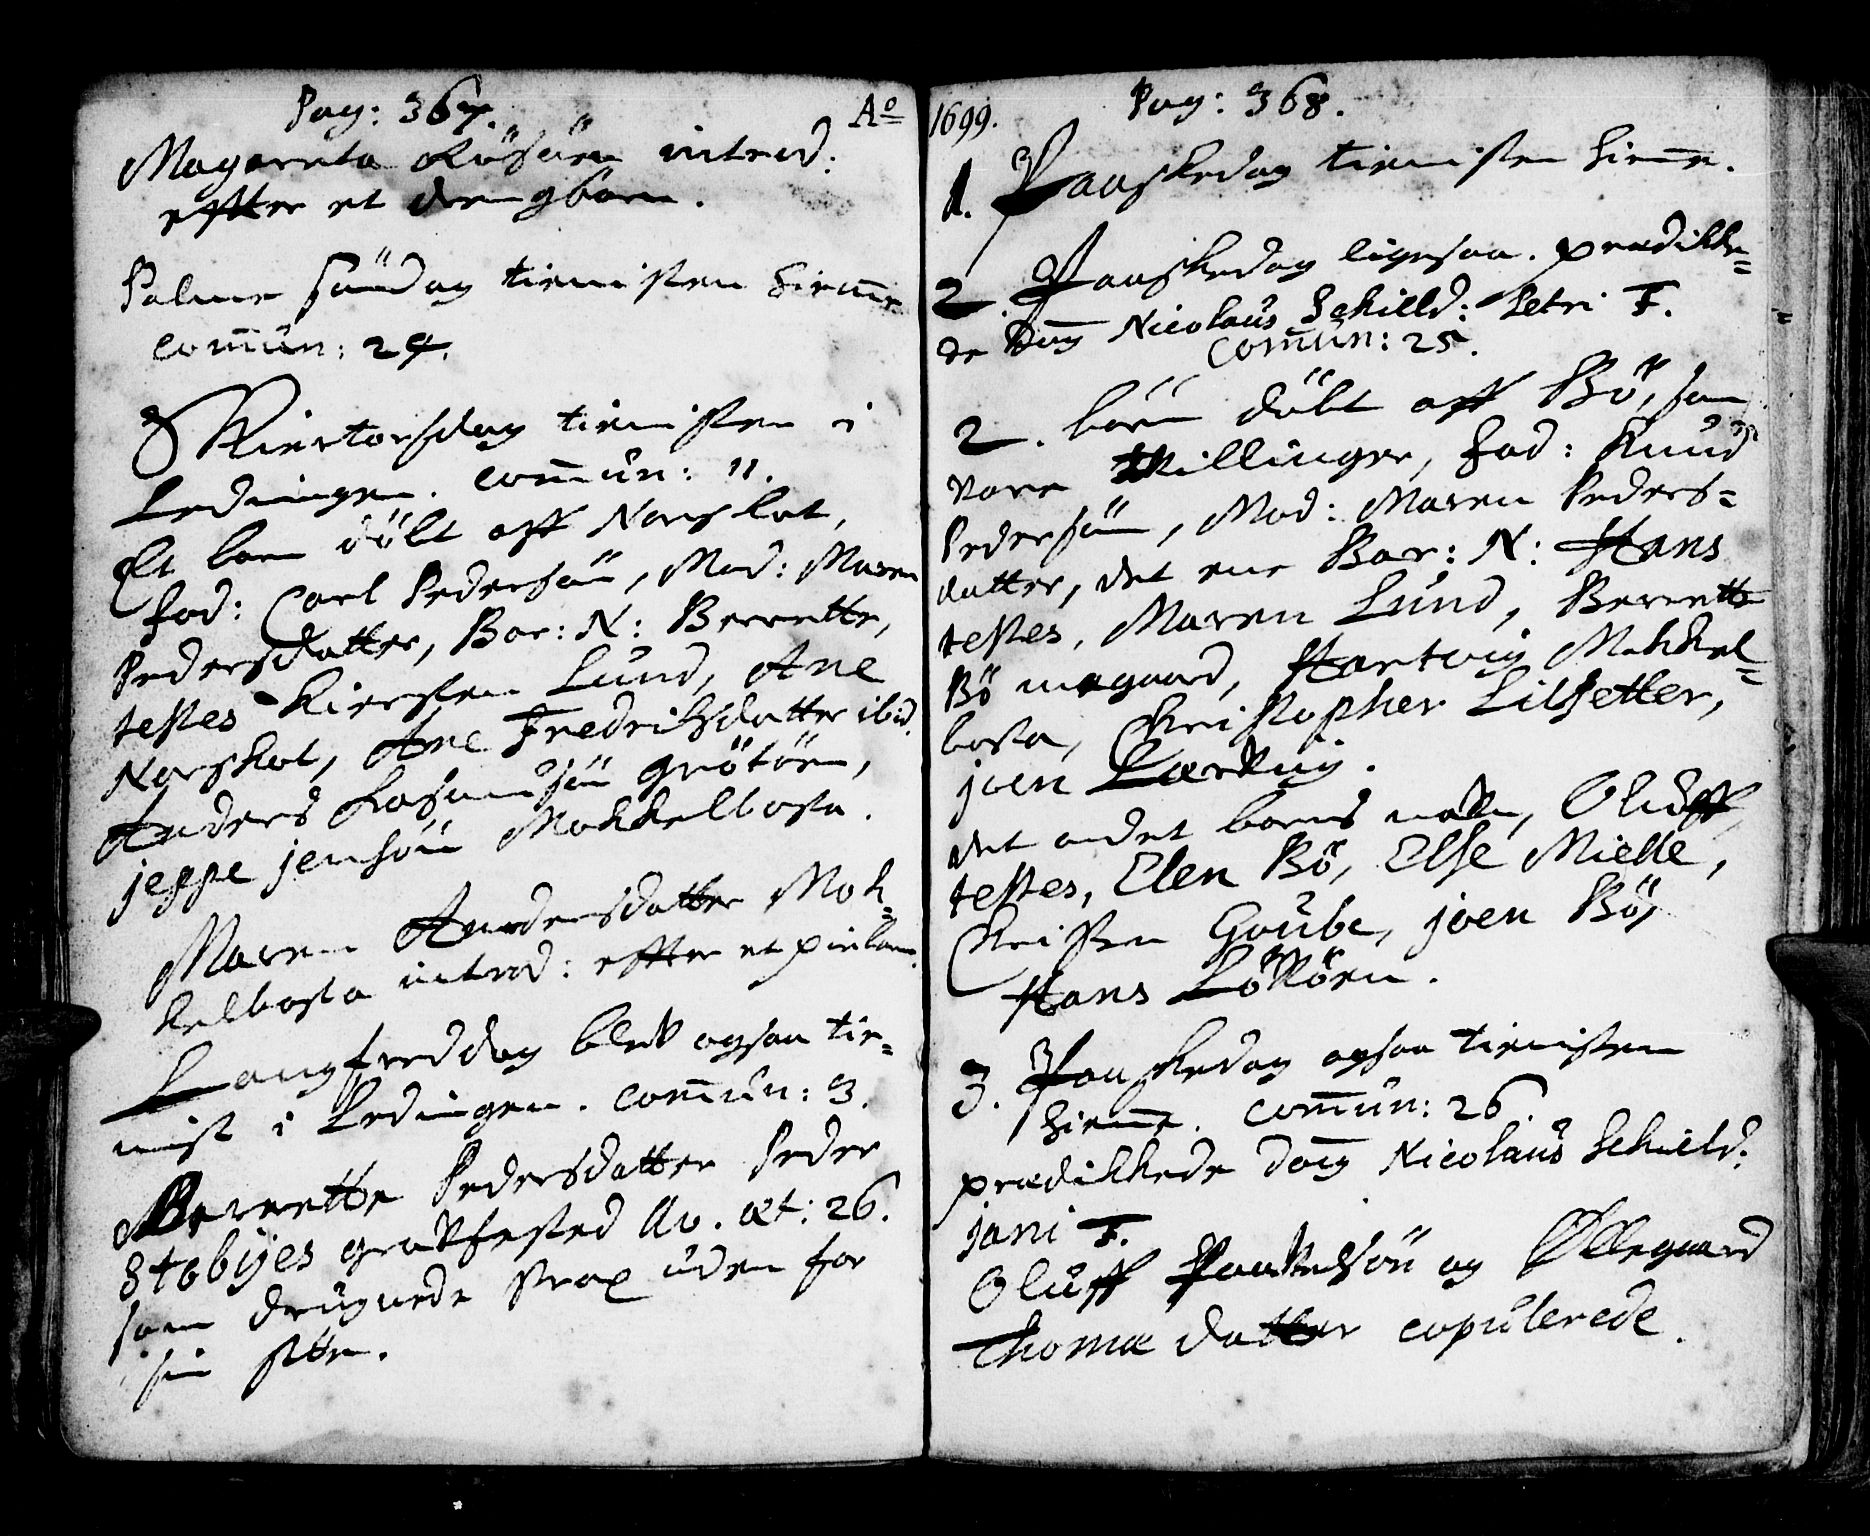 Pag: 367. Ao
Magareta Rösöen introd:
efftter et drengbarn.
Palme Söndag tienisten hieme
commun: 24.
Skiertorsdag tienisten i
Lødingen. commun: 11.
Et barn döbt aff Norskot,
fad: Carl Pedersön, Mod: Maren
Pedersdatter, Bar: N: Berrette,
testes Kiersten Lund, Ane
Norskot, Ane Fredrichsdatter ibid.
Anders Rasmusön Grötöen,
jeppe jensön Mokkelbosta.
Maren Andersdatter Mok=
kelbosta introd: effter et piebarn.
Langfreddag blev ogsaa tie=
nist i Lødingen. commun: 3.
Berrette Pedersdatter Peder
Stobyes gravfested Ao. æt: 26.
som drugnede strax uden for
sin
1699. Pag: 368.
1. Paaskedag tienisten hieme.
2. Paaskedag ligesaa. prædikke=
de Dom Nicolaus Schilld: Petri F.
commun: 25.
2. börn döbt aff Bö, som
vare tvillinger, fad: Knud
Pedersön, Mod: Maren Peders=
datter, det ene Bar: N: Hans
testes, Maren Lund, Berrette
Bömegaard, Hartvig Mokkel=
bosta, Christopher Lilsetter,
joen Lærkvig.
det andet barns navn, Oluff,
testes, Elen Bö, Else Mielle,
Christen Gaube, joen Bö,
Hans Lövöen.
3. Paaskedag ogsaa tienisten
hieme. commun: 26.
prædikkede dom Nicolaus Schield:
jani F.
Oluff Paavelsön og Ollegaard
Thomæ datter copulerede.